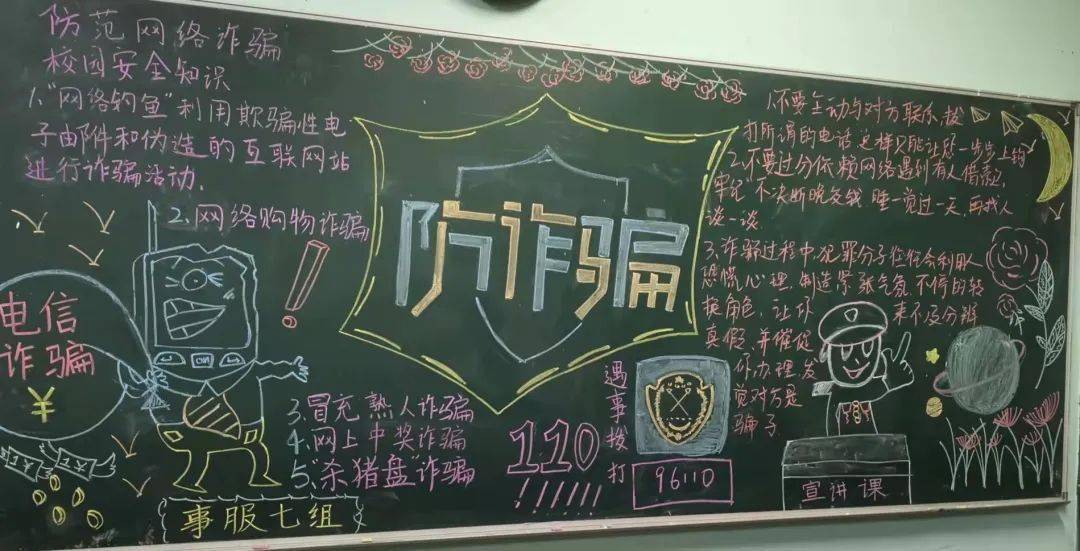 防范网络诈骗
校园安全知识
1."网络钓鱼"利用欺骗性电
子由阝件和伪造的互联网站
进行诈骗活动.
2.网络购物诈骗
电信
诈骗
¥
3.冒充熟人诈骗
4.网上中奖诈骗
5、"杀猪盘诈骗
事服七组
防诈骗
110
!!!!!!
遇事拨打
96110
1.不要主动与对方联系,拨
打所谓的电话这样只能让您一步步上钩
2.不要过分依赖网络遇到有人借款,
牢记"不决断晚交钱 睡一觉过一天,再找人
谈一谈.
3.诈骗过程中,犯罪分子往往会利用人
恐慌心理,制造紧张气氛,不停的转
换角色,让你来不及分辨
真假,并催促
你办理,发
觉对方是
骗子.
宣讲课